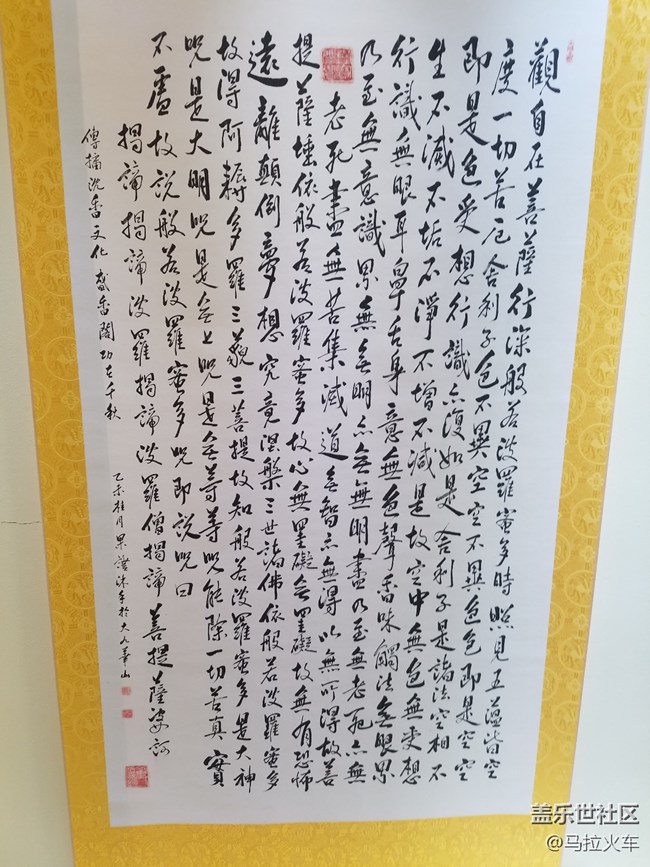 觀自在菩薩行深般若波羅蜜多時照見五蘊皆空
度一切苦厄舍利子色不異空空不異色色即是空空
即是色受想行識亦復如是舍利子是諸法空相不
生不滅不垢不淨不增不減是故空中無色無受想
行識無眼耳鼻舌身意無色聲香味觸法無眼界
乃至無意識界無無明亦無無明盡乃至無老死亦無
老死盡無苦集滅道無智亦無得以無所得故菩
提薩埵依般若波羅蜜多故心無罣礙無罣礙故無有恐怖
遠離顛倒夢想究竟涅槃三世諸佛依般若波羅蜜多
故得阿耨多羅三藐三菩提故知般若波羅蜜多是大神
呪是大明呪是無上呪是無等等呪能除一切苦真實
不虛故說般若波羅蜜多呪即說呪曰
揭諦揭諦波羅揭諦波羅僧揭諦菩提薩婆訶
傳播沈香文化 盛香閣功在千秋
乙未桂月果證沐手於大九華山
盖乐世社区
@马拉火车